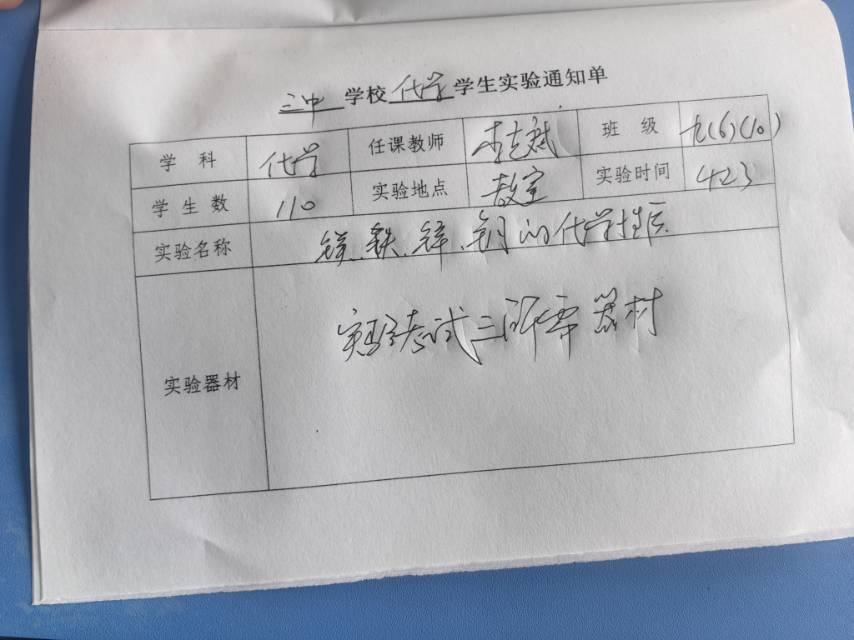 三中 学校 化学 学生实验通知单
学 科 化学 任课教师 李志斌 班 级 九(6)(10)
学 生 数 110 实验地点 教室 实验时间 4.23
实验名称 镁、铁、锌、铜的化学性质
实验器材 实验考试三所需器材